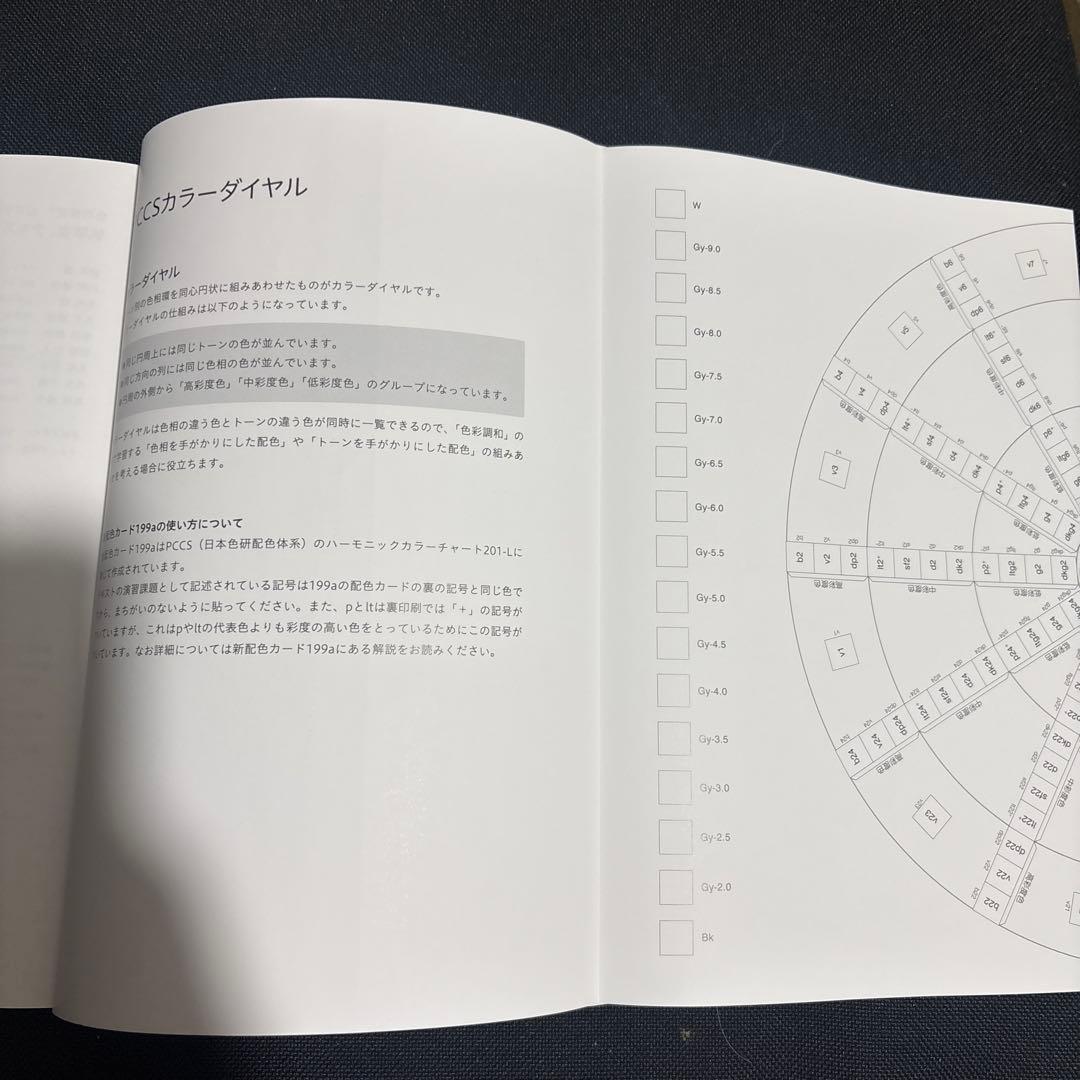 CCSカラーダイヤル
ラーダイヤル
別の色相環を同心円状に組みあわせたものがカラーダイヤルです。
ーダイヤルの仕組みは以下のようになっています。
同じ円周上には同じトーンの色が並んでいます。
同じ方向の列には同じ色相の色が並んでいます。
円周の外側から「高彩度色」「中彩度色」「低彩度色」のグループになっています。
ラーダイヤルは色相の違う色とトーンの違う色が同時に一覧できるので、「色彩調和」の
学習する「色相を手がかりにした配色」や「トーンを手がかりにした配色」の組みあ
を考える場合に役立ちます。
配色カード199aの使い方について
配色カード199aはPCCS（日本色研配色体系）のハーモニックカラーチャート201-Lに
て作成されています。
キストの演習課題として記述されている記号は199aの配色カードの裏の記号と同じ色で
から、まちがいのないように貼ってください。また、pとltは裏印刷では「+」の記号が
いていますが、これはpやltの代表色よりも彩度の高い色をとっているためにこの記号が
いています。なお詳細については新配色カード199aにある解説をお読みください。
W
Gy-9.0
Gy-8.5
Gy-8.0
Gy-7.5
Gy-7.0
Gy-6.5
Gy-6.0
Gy-5.5
Gy-5.0
Gy-4.5
Gy-4.0
Gy-3.5
Gy-3.0
Gy-2.5
Gy-2.0
Bk
v7
b6 v6 dp6 lt6+ sf6 d6 dk6 p6+
高彩度色 中彩度色 低彩度色
v5
b4 v4 dp4 lt4+ sf4 d4 dk4 p4+ ltg4 g4 dkg4
高彩度色 中彩度色 低彩度色
v3
b2 v2 dp2 lt2+ sf2 d2 dk2 p2+ ltg2 g2 dkg2
高彩度色 中彩度色 低彩度色
v1
b24 v24 dp24 lt24+ sf24 d24 dk24 p24+ ltg24 g24
高彩度色 中彩度色 低彩度色
v23
b22 v22 dp22 lt22+ sf22 d22 dk22
高彩度色 中彩度色
v21